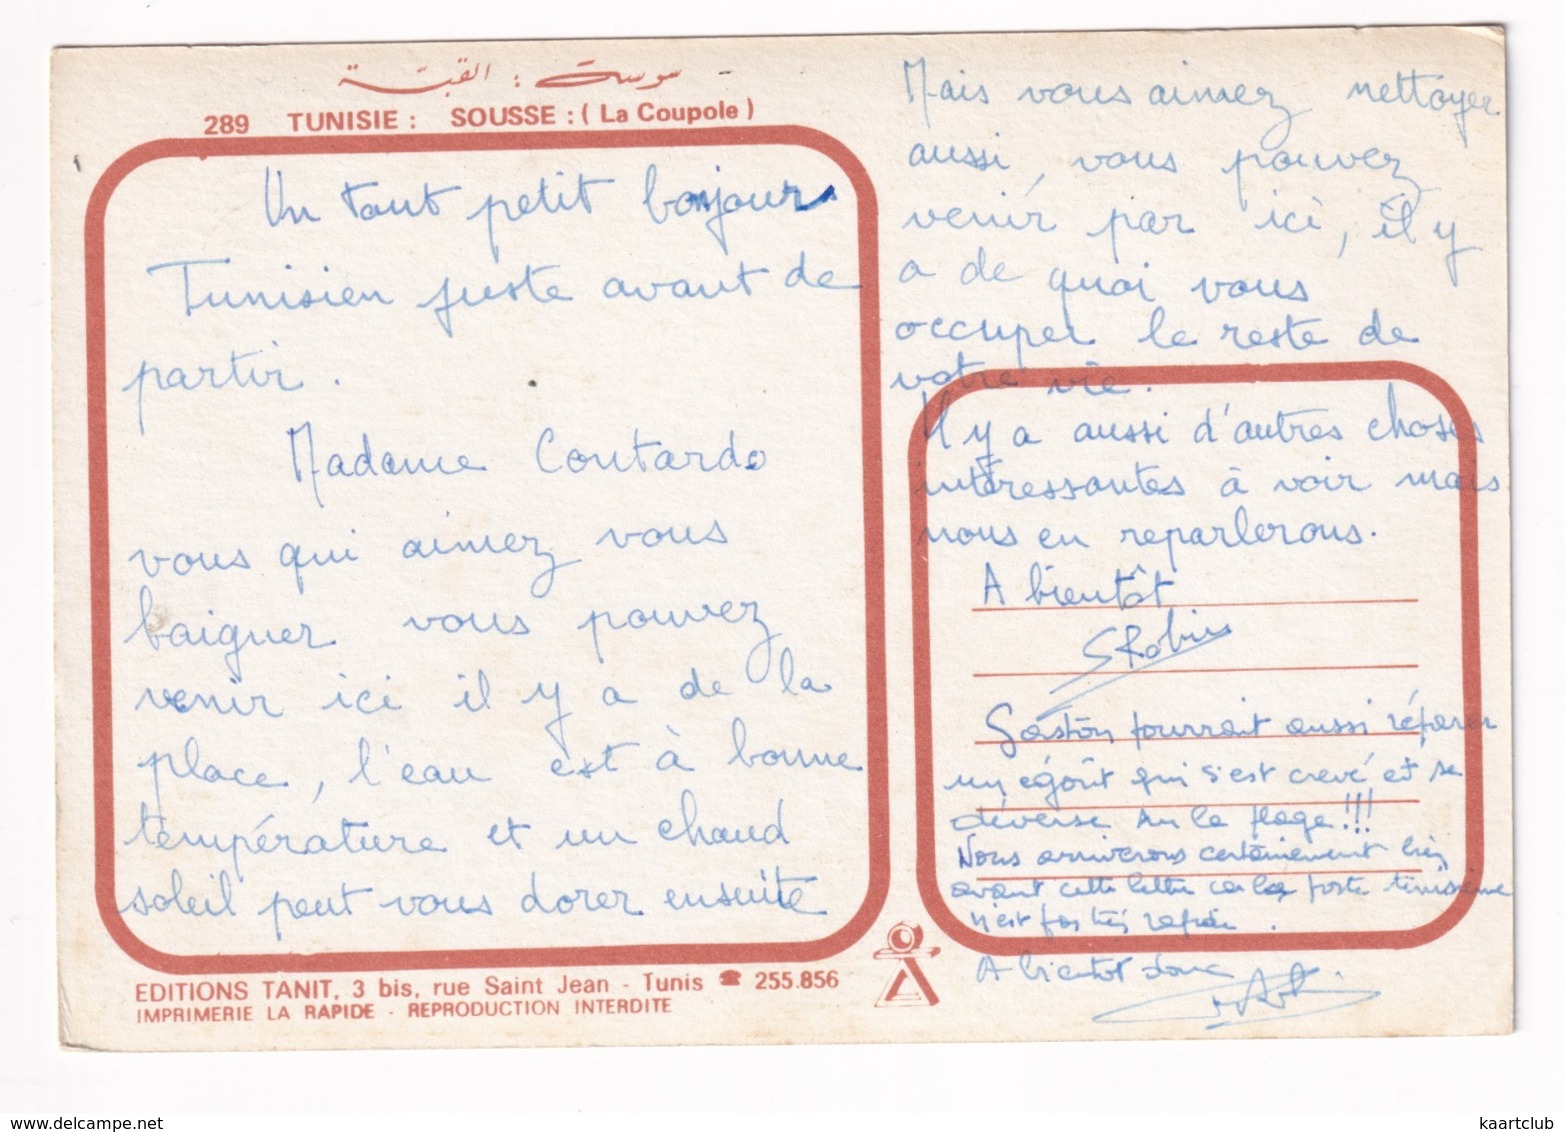 سوسة : القبة
289 TUNISIE : SOUSSE : ( La Coupole )
Un tout petit bonjour
Tunisien juste avant de
partir.
Madame Coutardo
vous qui aimez vous
baigner vous pouvez
venir ici il y a de la
place, l'eau est à bonne
température et un chaud
soleil peut vous dorer ensuite
Mais vous aimez nettoyer
aussi, vous pouvez
venir par ici, il y
a de quoi vous
occuper le reste de
votre vie.
Il y a aussi d'autres choses
intéressantes à voir mais
nous en reparlerons.
A bientôt
SRobin
Gaston pourrait aussi réparer
un égoût qui s'est crevé et se
déverse sur la plage !!!
Nous arriverons certainement bien
avant cette lettre car la poste tunisienne
n'est pas très rapide.
A bientot donc
EDITIONS TANIT, 3 bis, rue Saint Jean - Tunis ☎ 255.856
IMPRIMERIE LA RAPIDE - REPRODUCTION INTERDITE
kaartclub